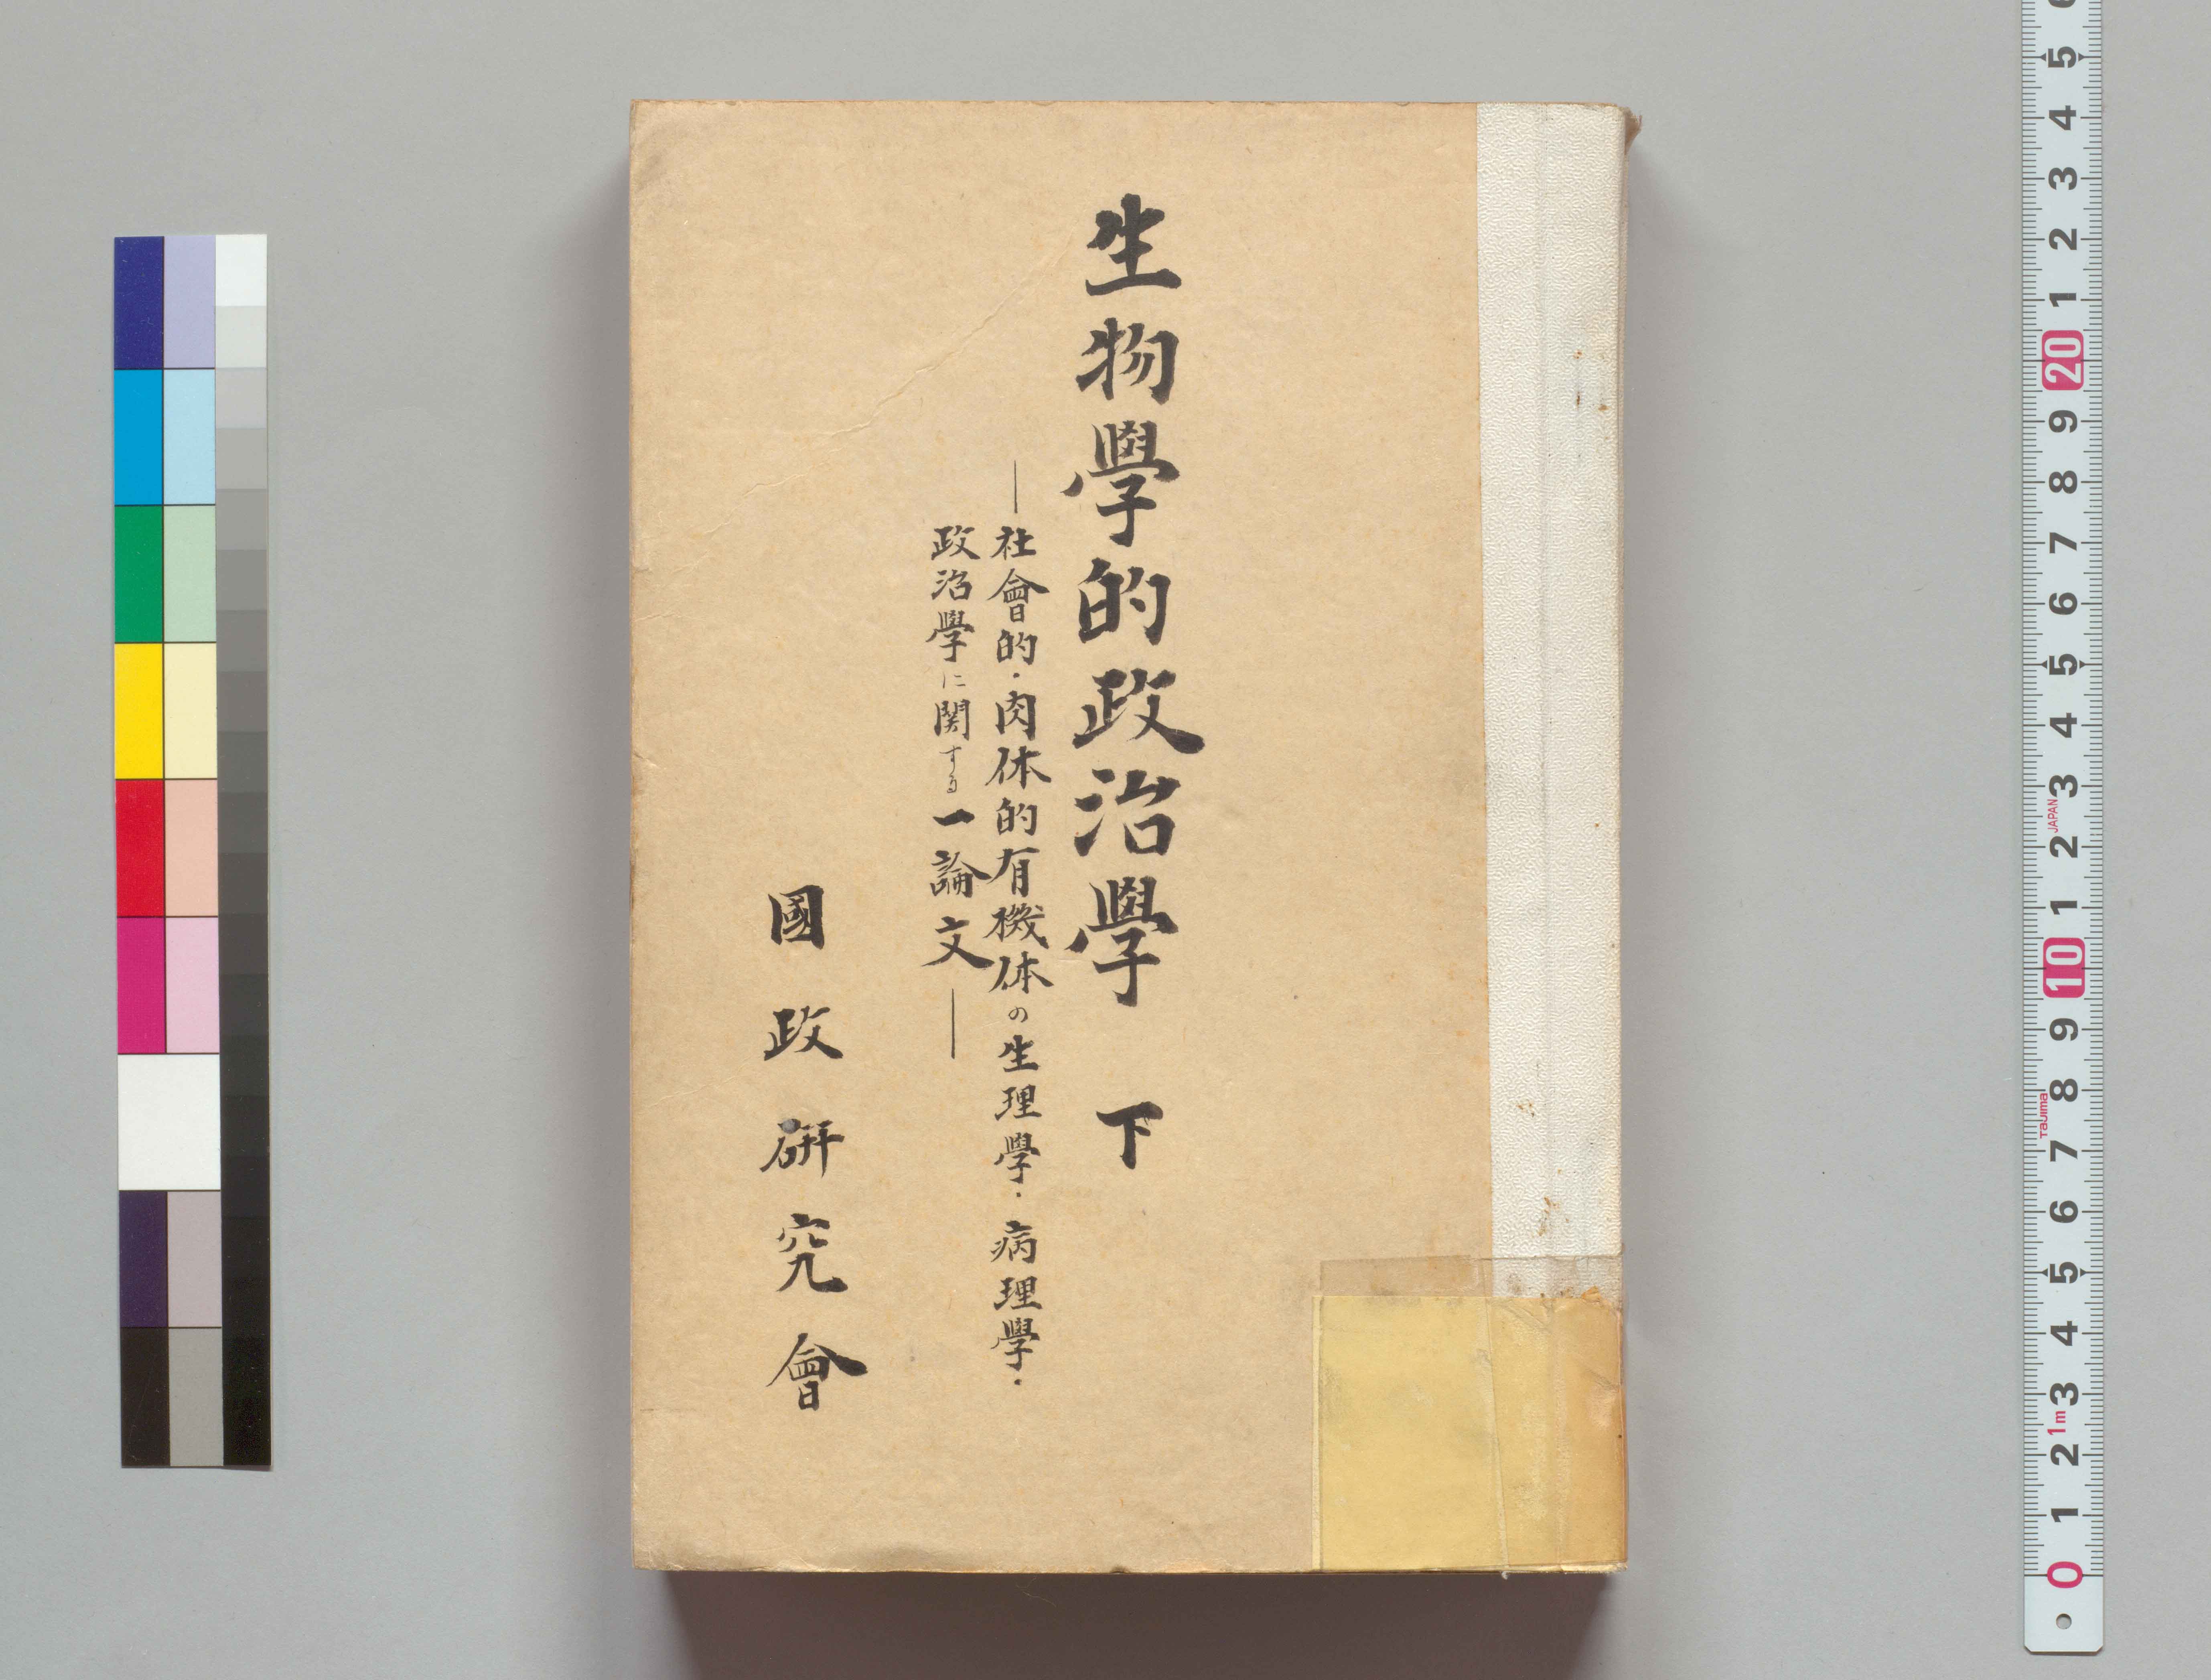 生物學的政治學 下
―社會的・肉体的有機体の生理學・病理學・
政治學に関する一論文―
國政研究會
6
5
4
3
2
1
20
9
8
7
6
5
4
3
JAPAN
2
1
10
9
8
Tajima
7
6
5
4
3
1m
2
1
0